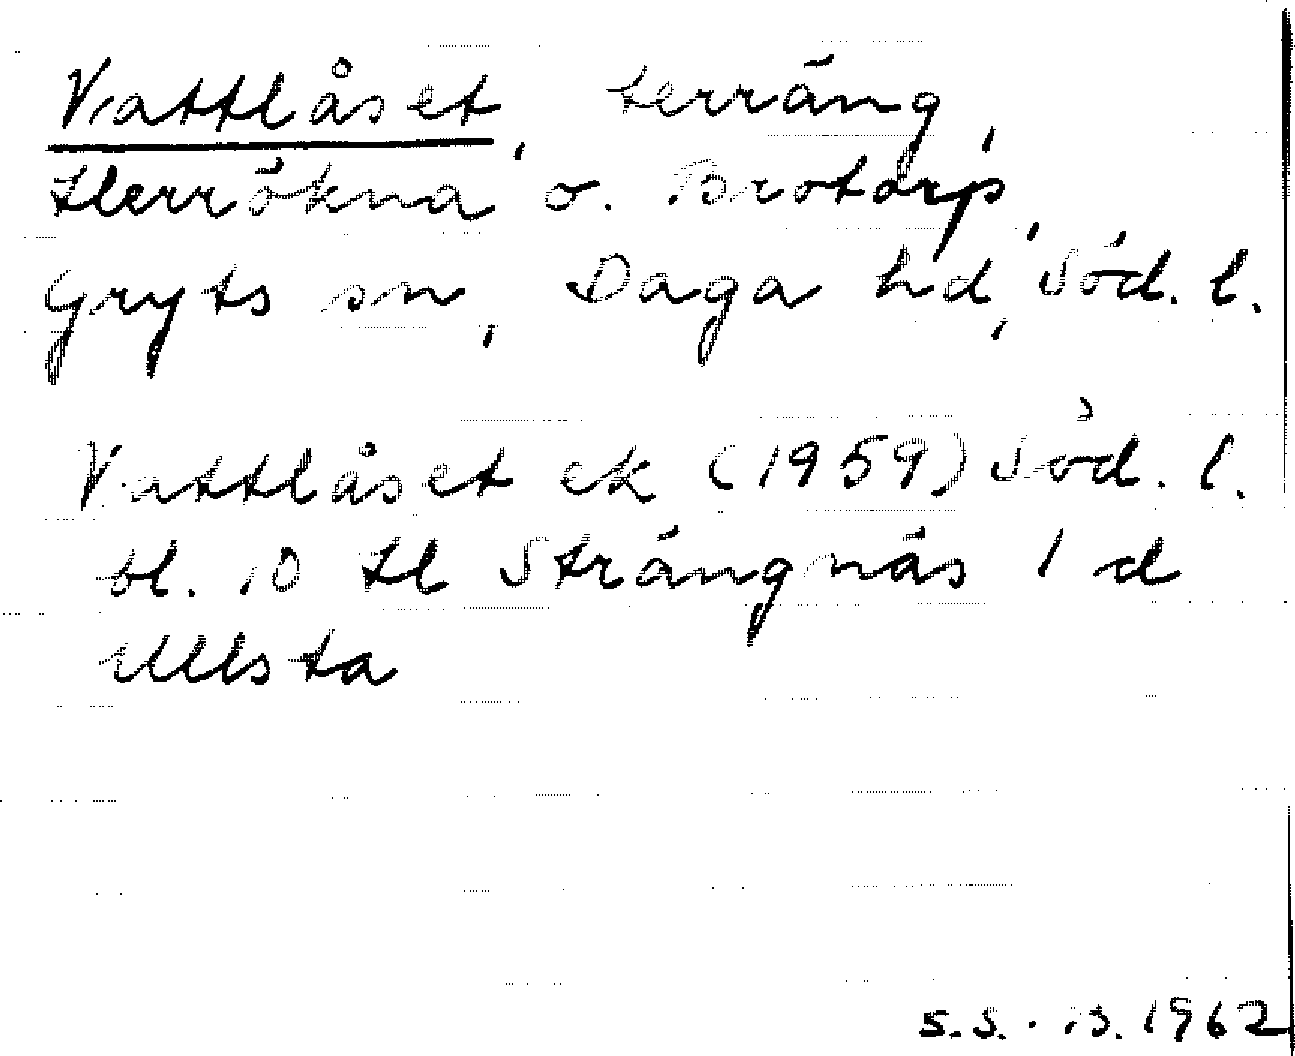 Vattlåset, terräng,
Herrökna o. Brotorp,
Gryts sn, Daga hd, Söd. l.
Vattlåset ek (1959) Söd. l.
bl. 10 H Strängnäs 1 d
Ullsta
S.S. B. 1962